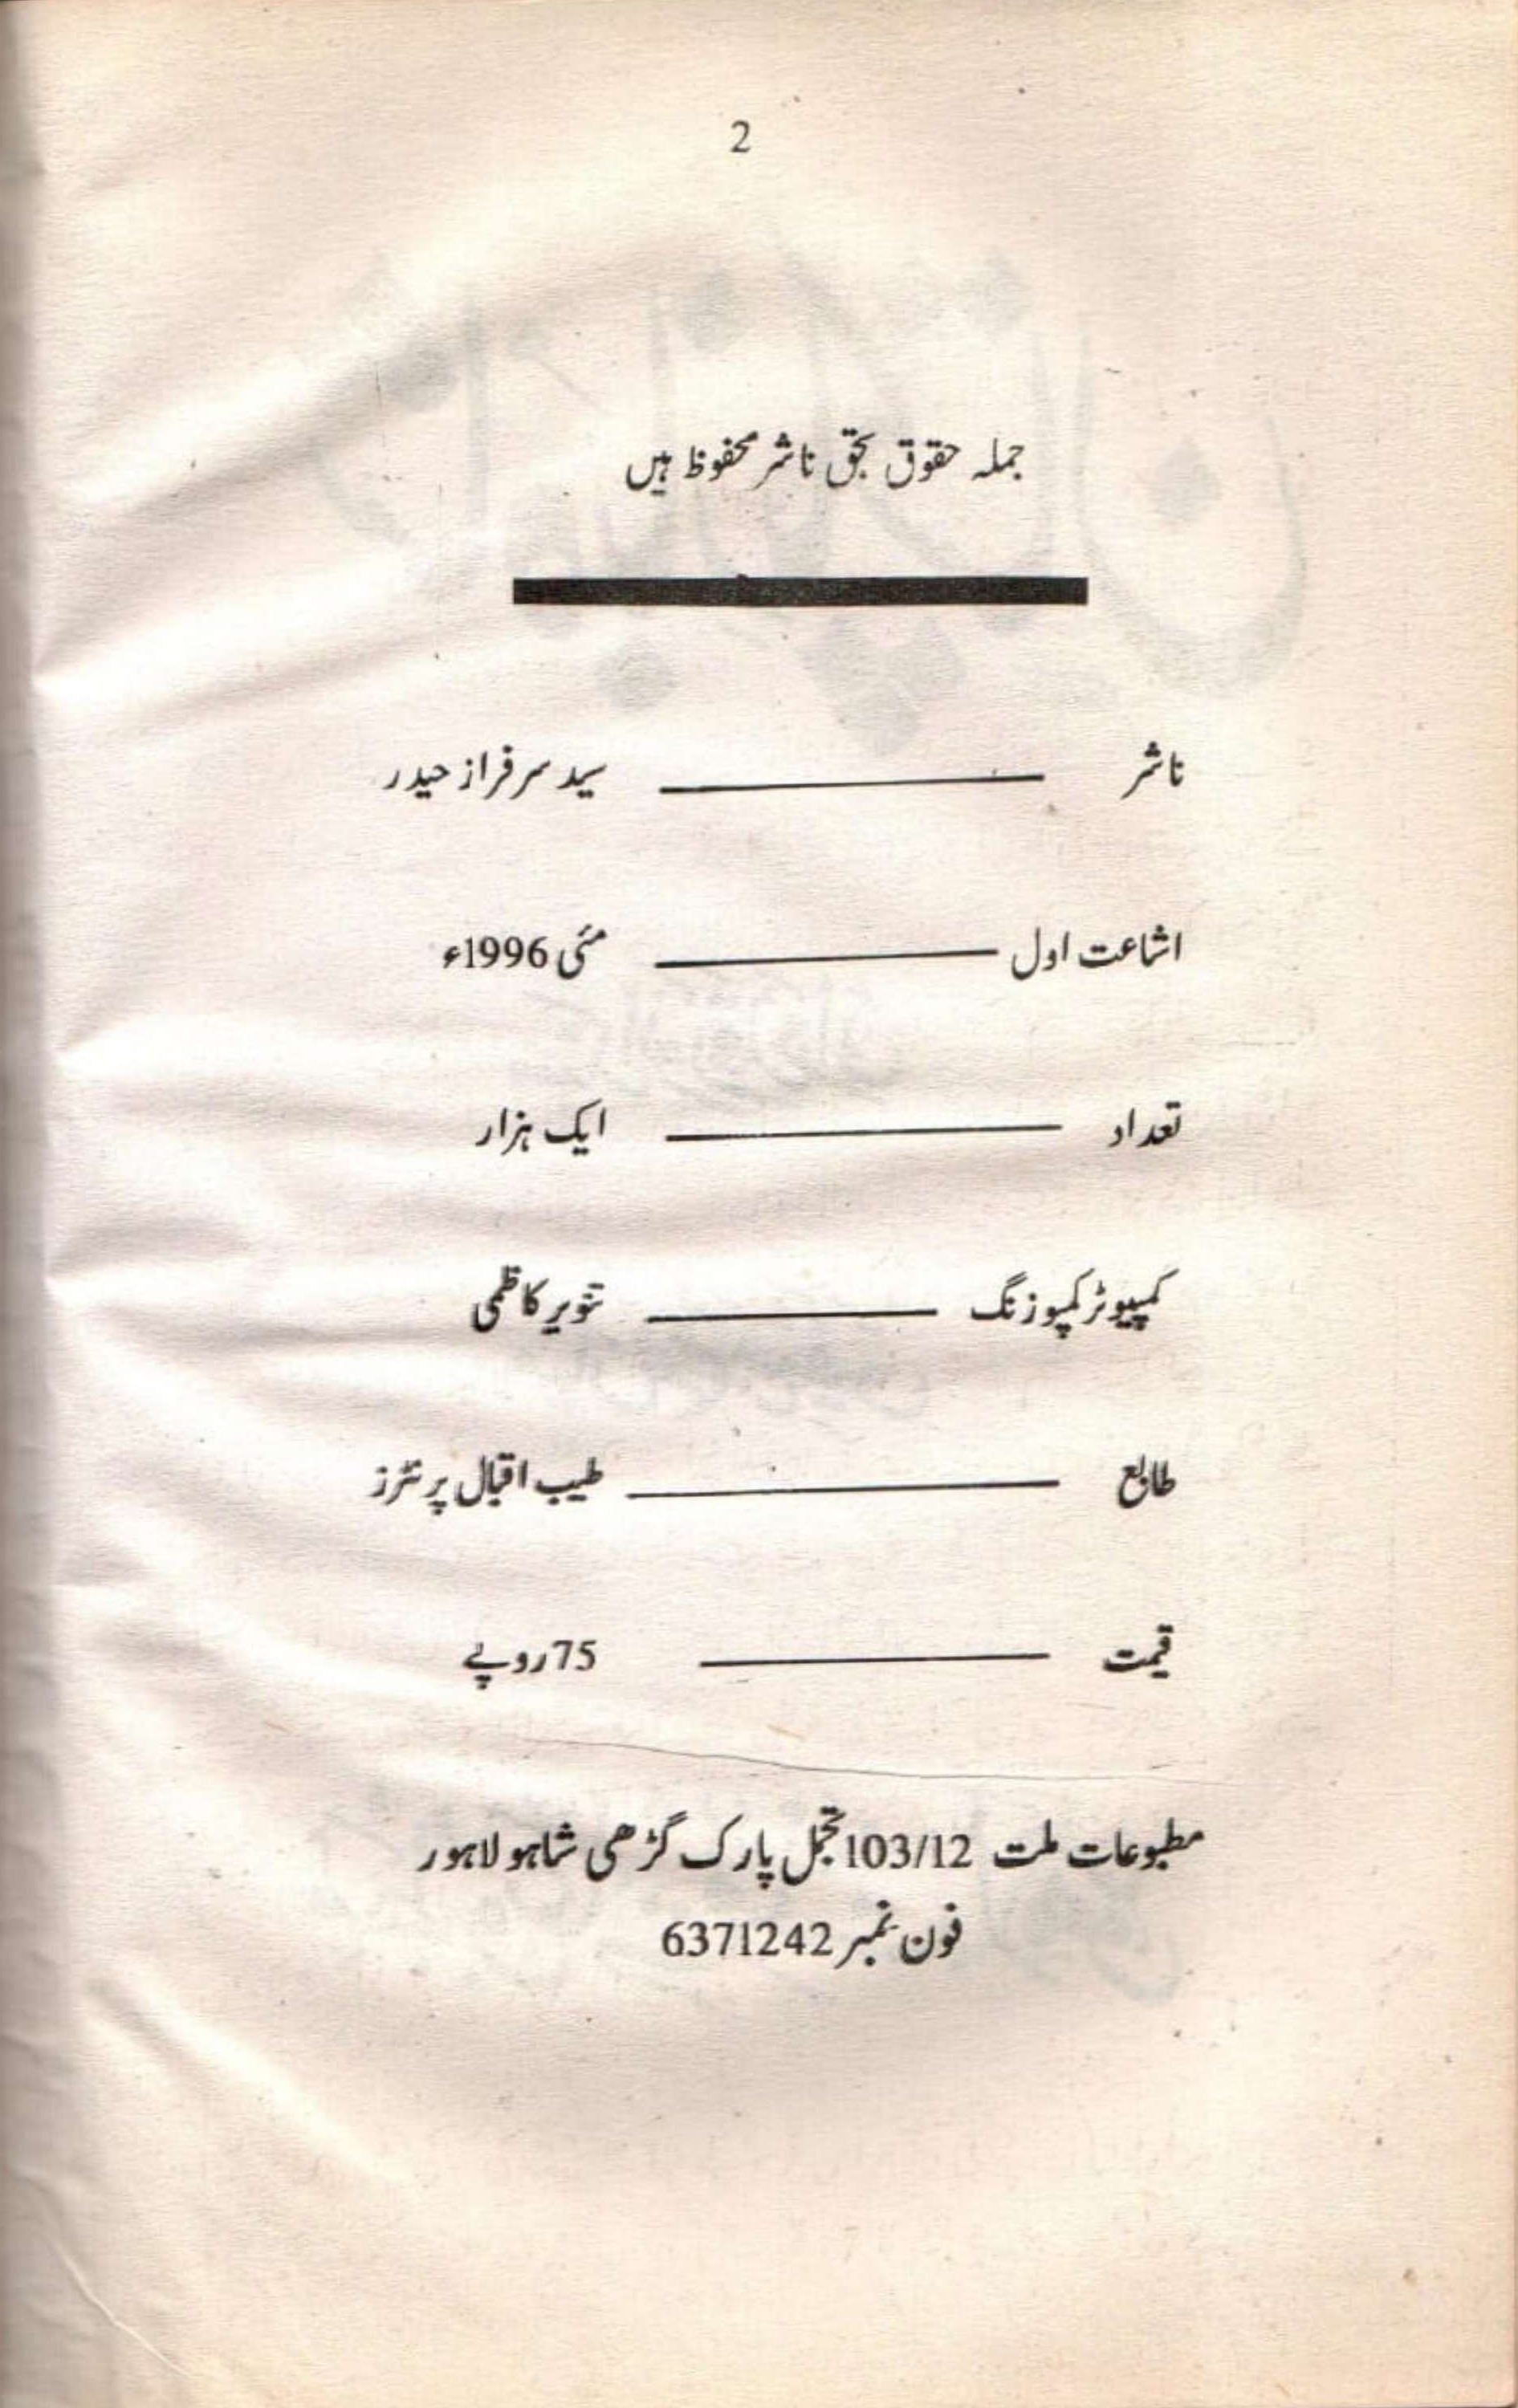 2
جملہ حقوق بحق ناشر محفوظ ہیں
ناشر ــــــــ سید سرفراز حیدر
اشاعت اول ــــــــ مئی 1996ء
تعداد ــــــــ ایک ہزار
کمپیوٹر کمپوزنگ ــــــــ تنویر کاظمی
طابع ــــــــ طیب اقبال پرنٹرز
قیمت ــــــــ 75 روپے
مطبوعات ملت 103/12 تجمل پارک گڑھی شاہو لاہور
فون نمبر 6371242